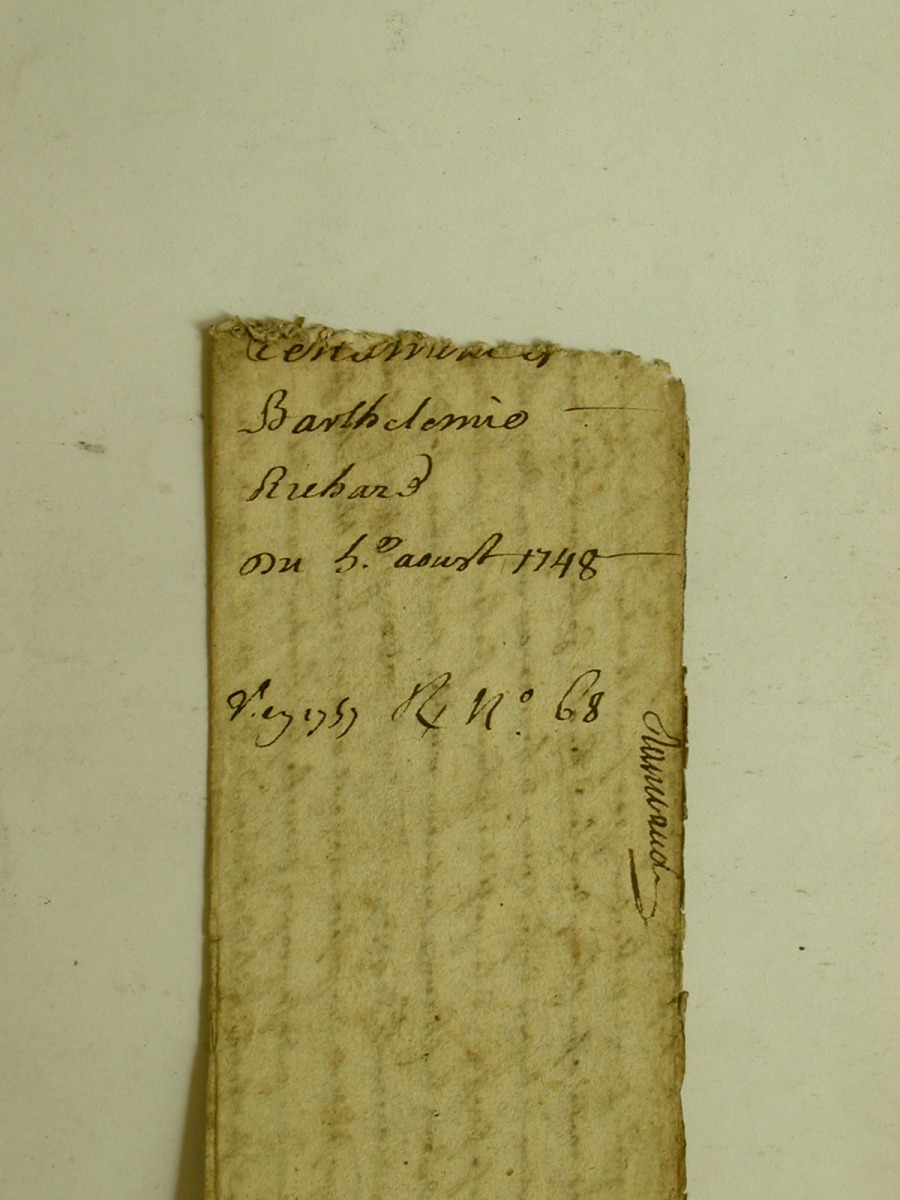 Testament de
Barthelemie
Richard
Du 5.e aoust 1748
1757 N° 68